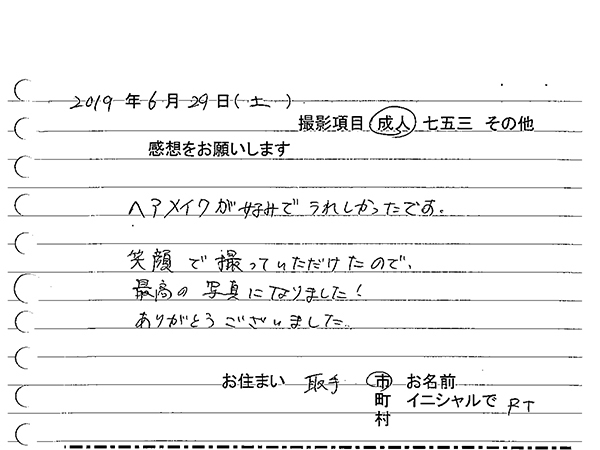 2019年6月29日(土)
撮影項目 成人 七五三 その他
感想をお願いします
ヘアメイクが好みでうれしかったです。
笑顔で撮っていただけたので、
最高の写真になりました!
ありがとうございました。
お住まい 取手 市 お名前
町 イニシャルで RT
村